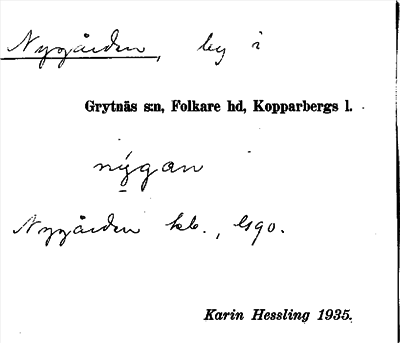 Nygården, by i
Grytnäs s:n, Folkare hd, Kopparbergs l.
nýgan
Nygården kb.,
Karin Hessling 1935.